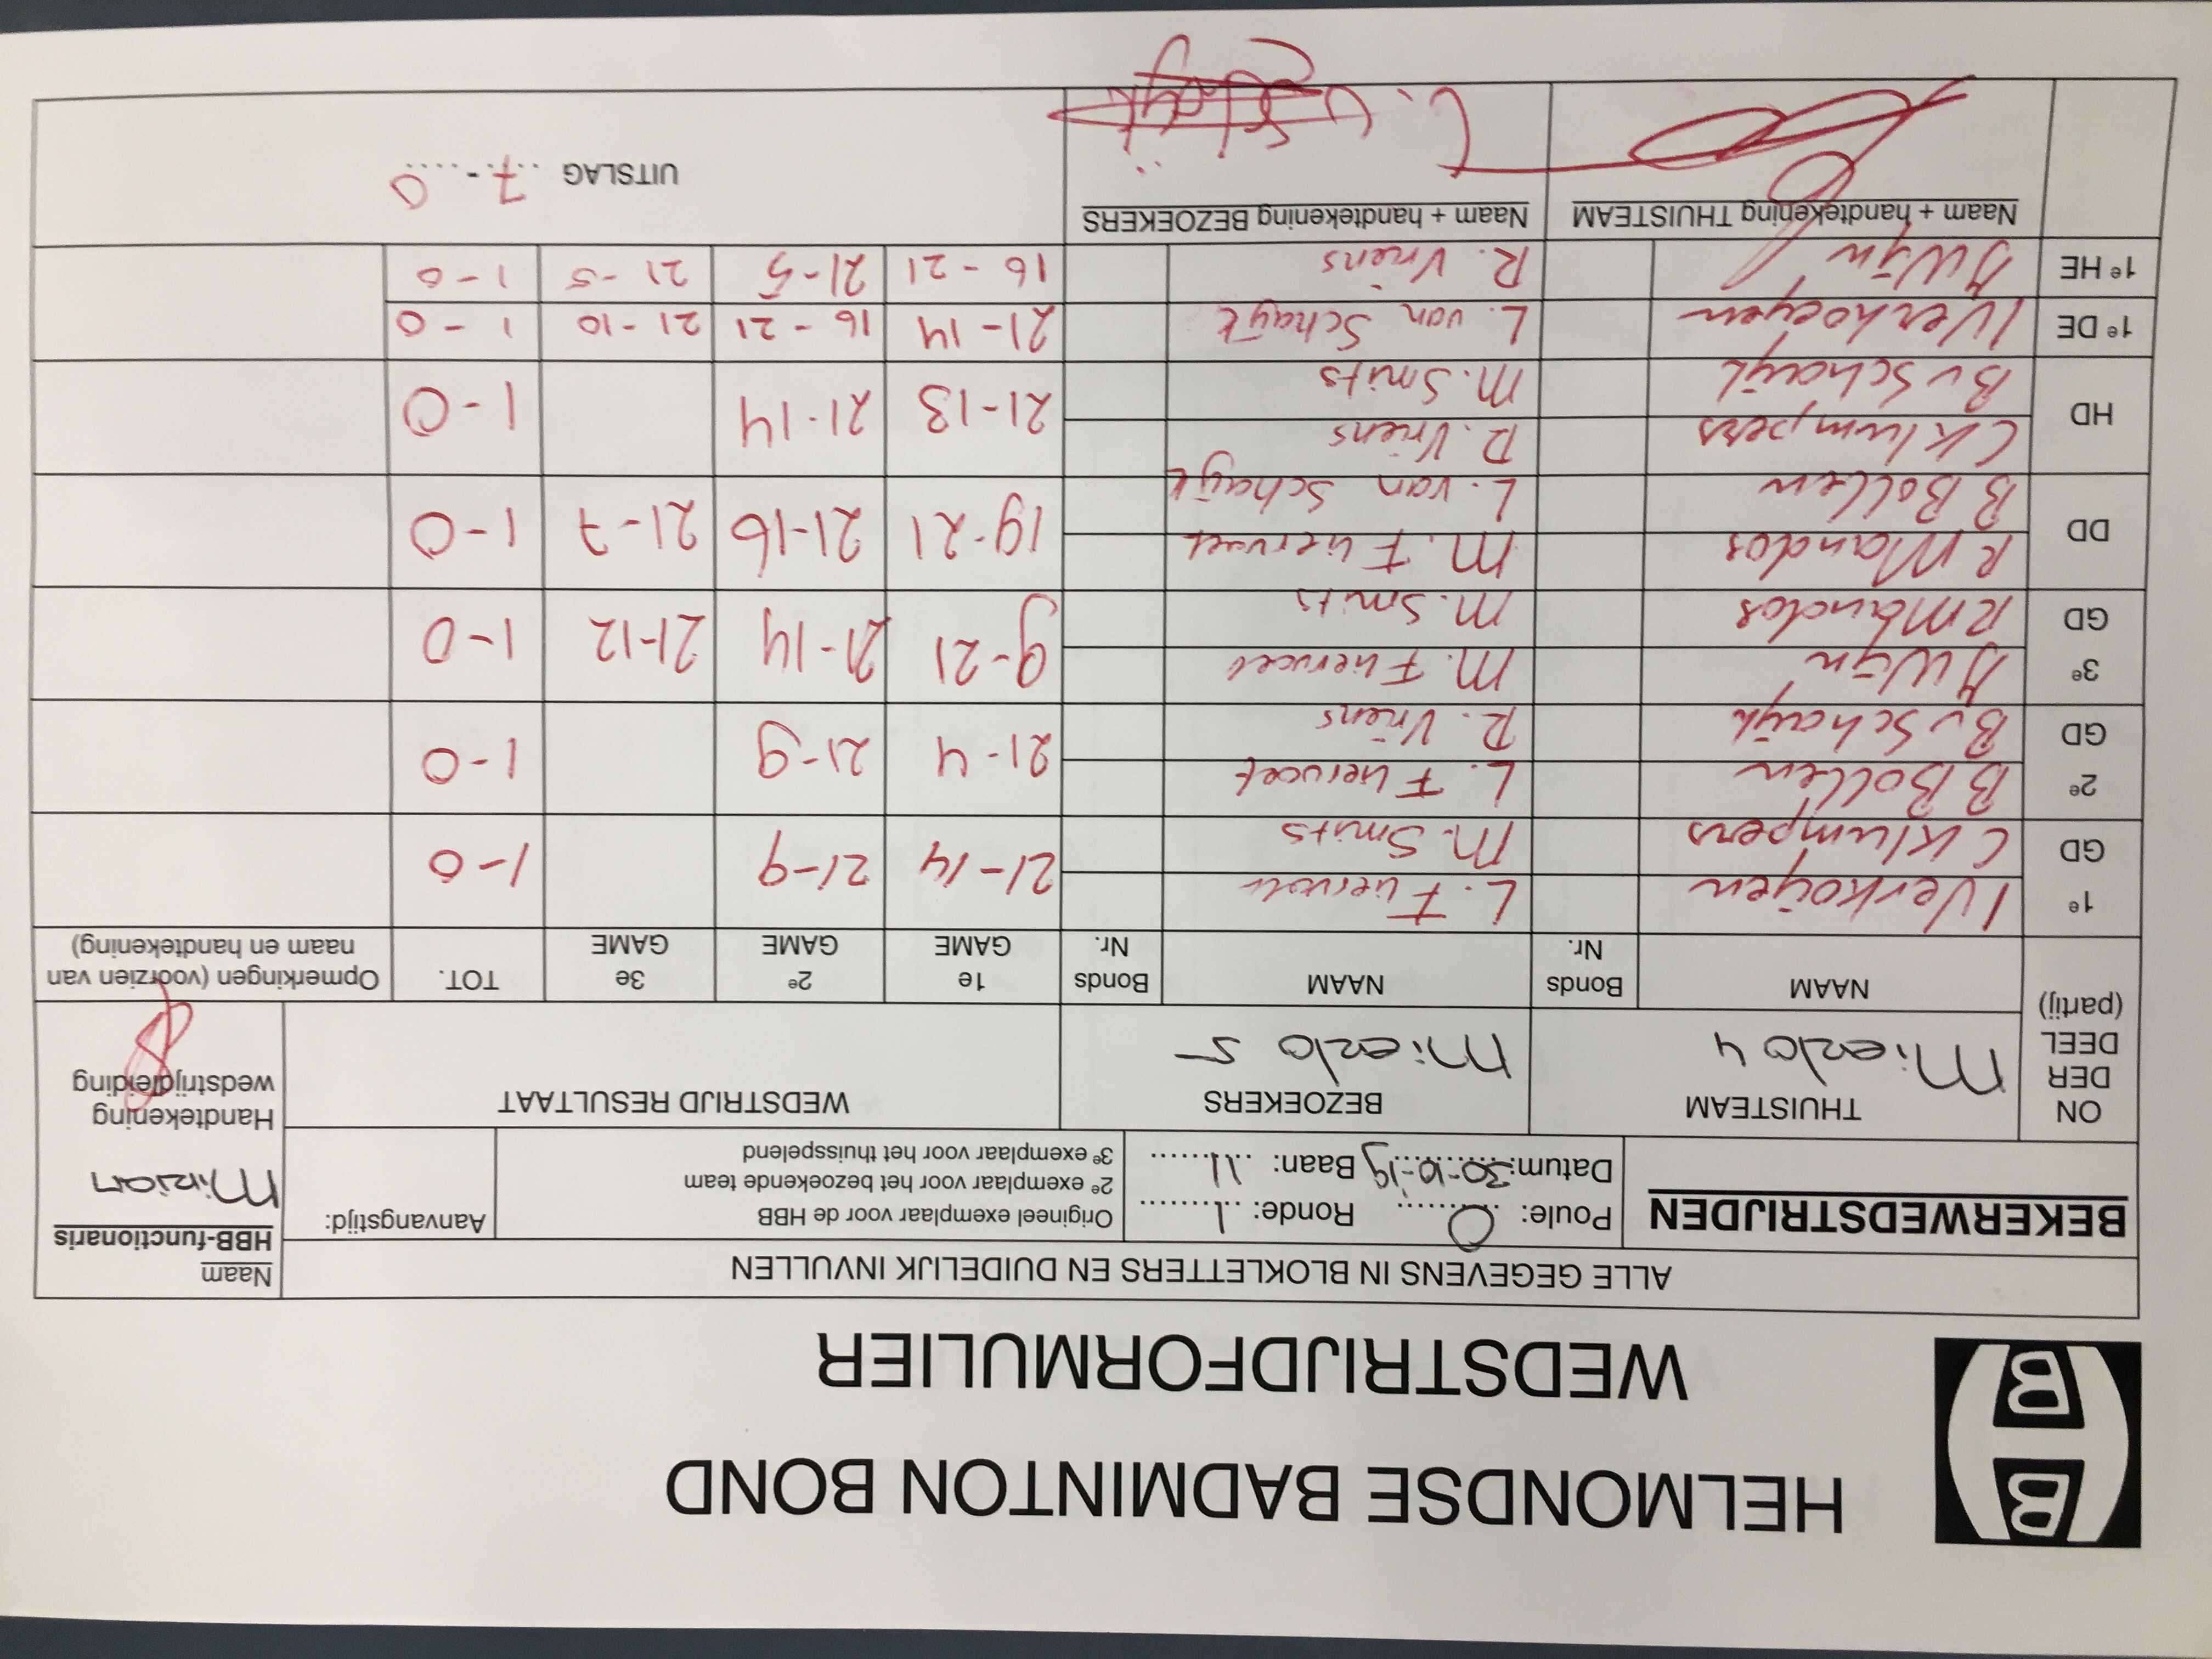 HELMONDSE BADMINTON BOND
WEDSTRIJDFORMULIER
ALLE GEGEVENS IN BLOKLETTERS EN DUIDELIJK INVULLEN
Naam
HBB-functionaris
BEKERWEDSTRIJDEN
Poule: O Ronde: 1
Datum: 30-10-19 Baan: 11
Origineel exemplaar voor de HBB
2e exemplaar voor het bezoekende team
3e exemplaar voor het thuisspelend
Aanvangstijd:
Mirian
Handtekening
wedstrijdleiding
ON
DER
DEEL
(partij)
THUISTEAM
Mierlo 4
BEZOEKERS
Mierlo 5
WEDSTRIJD RESULTAAT
NAAM
Bonds
Nr.
NAAM
Bonds
Nr.
1e
GAME
2e
GAME
3e
GAME
TOT.
Opmerkingen (voorzien van
naam en handtekening)
1e L. Fliervoet
GD C Klumpers M. Smits 21-14 21-9 1-0
2e B Bollen L. Fliervoet
GD B v Schaijk R. Vriens 21-4 21-9 1-0
3e A Wijn M. Fliervoet
GD R Mandos M. Smits 9-21 21-14 21-12 1-0
DD R Mandos M. Fliervoet
B Bollen L. van Schaijk 19-21 21-16 21-7 1-0
HD C Klumpers R. Vriens
B v Schaijk M. Smits 21-13 21-14 1-0
1e DE I Verhoeyen L. van Schaijk 21-14 16-21 21-10 1-0
1e HE A Wijn R. Vriens 16-21 21-5 21-5 1-0
Naam + handtekening THUISTEAM
Naam + handtekening BEZOEKERS
UITSLAG 7 - 0